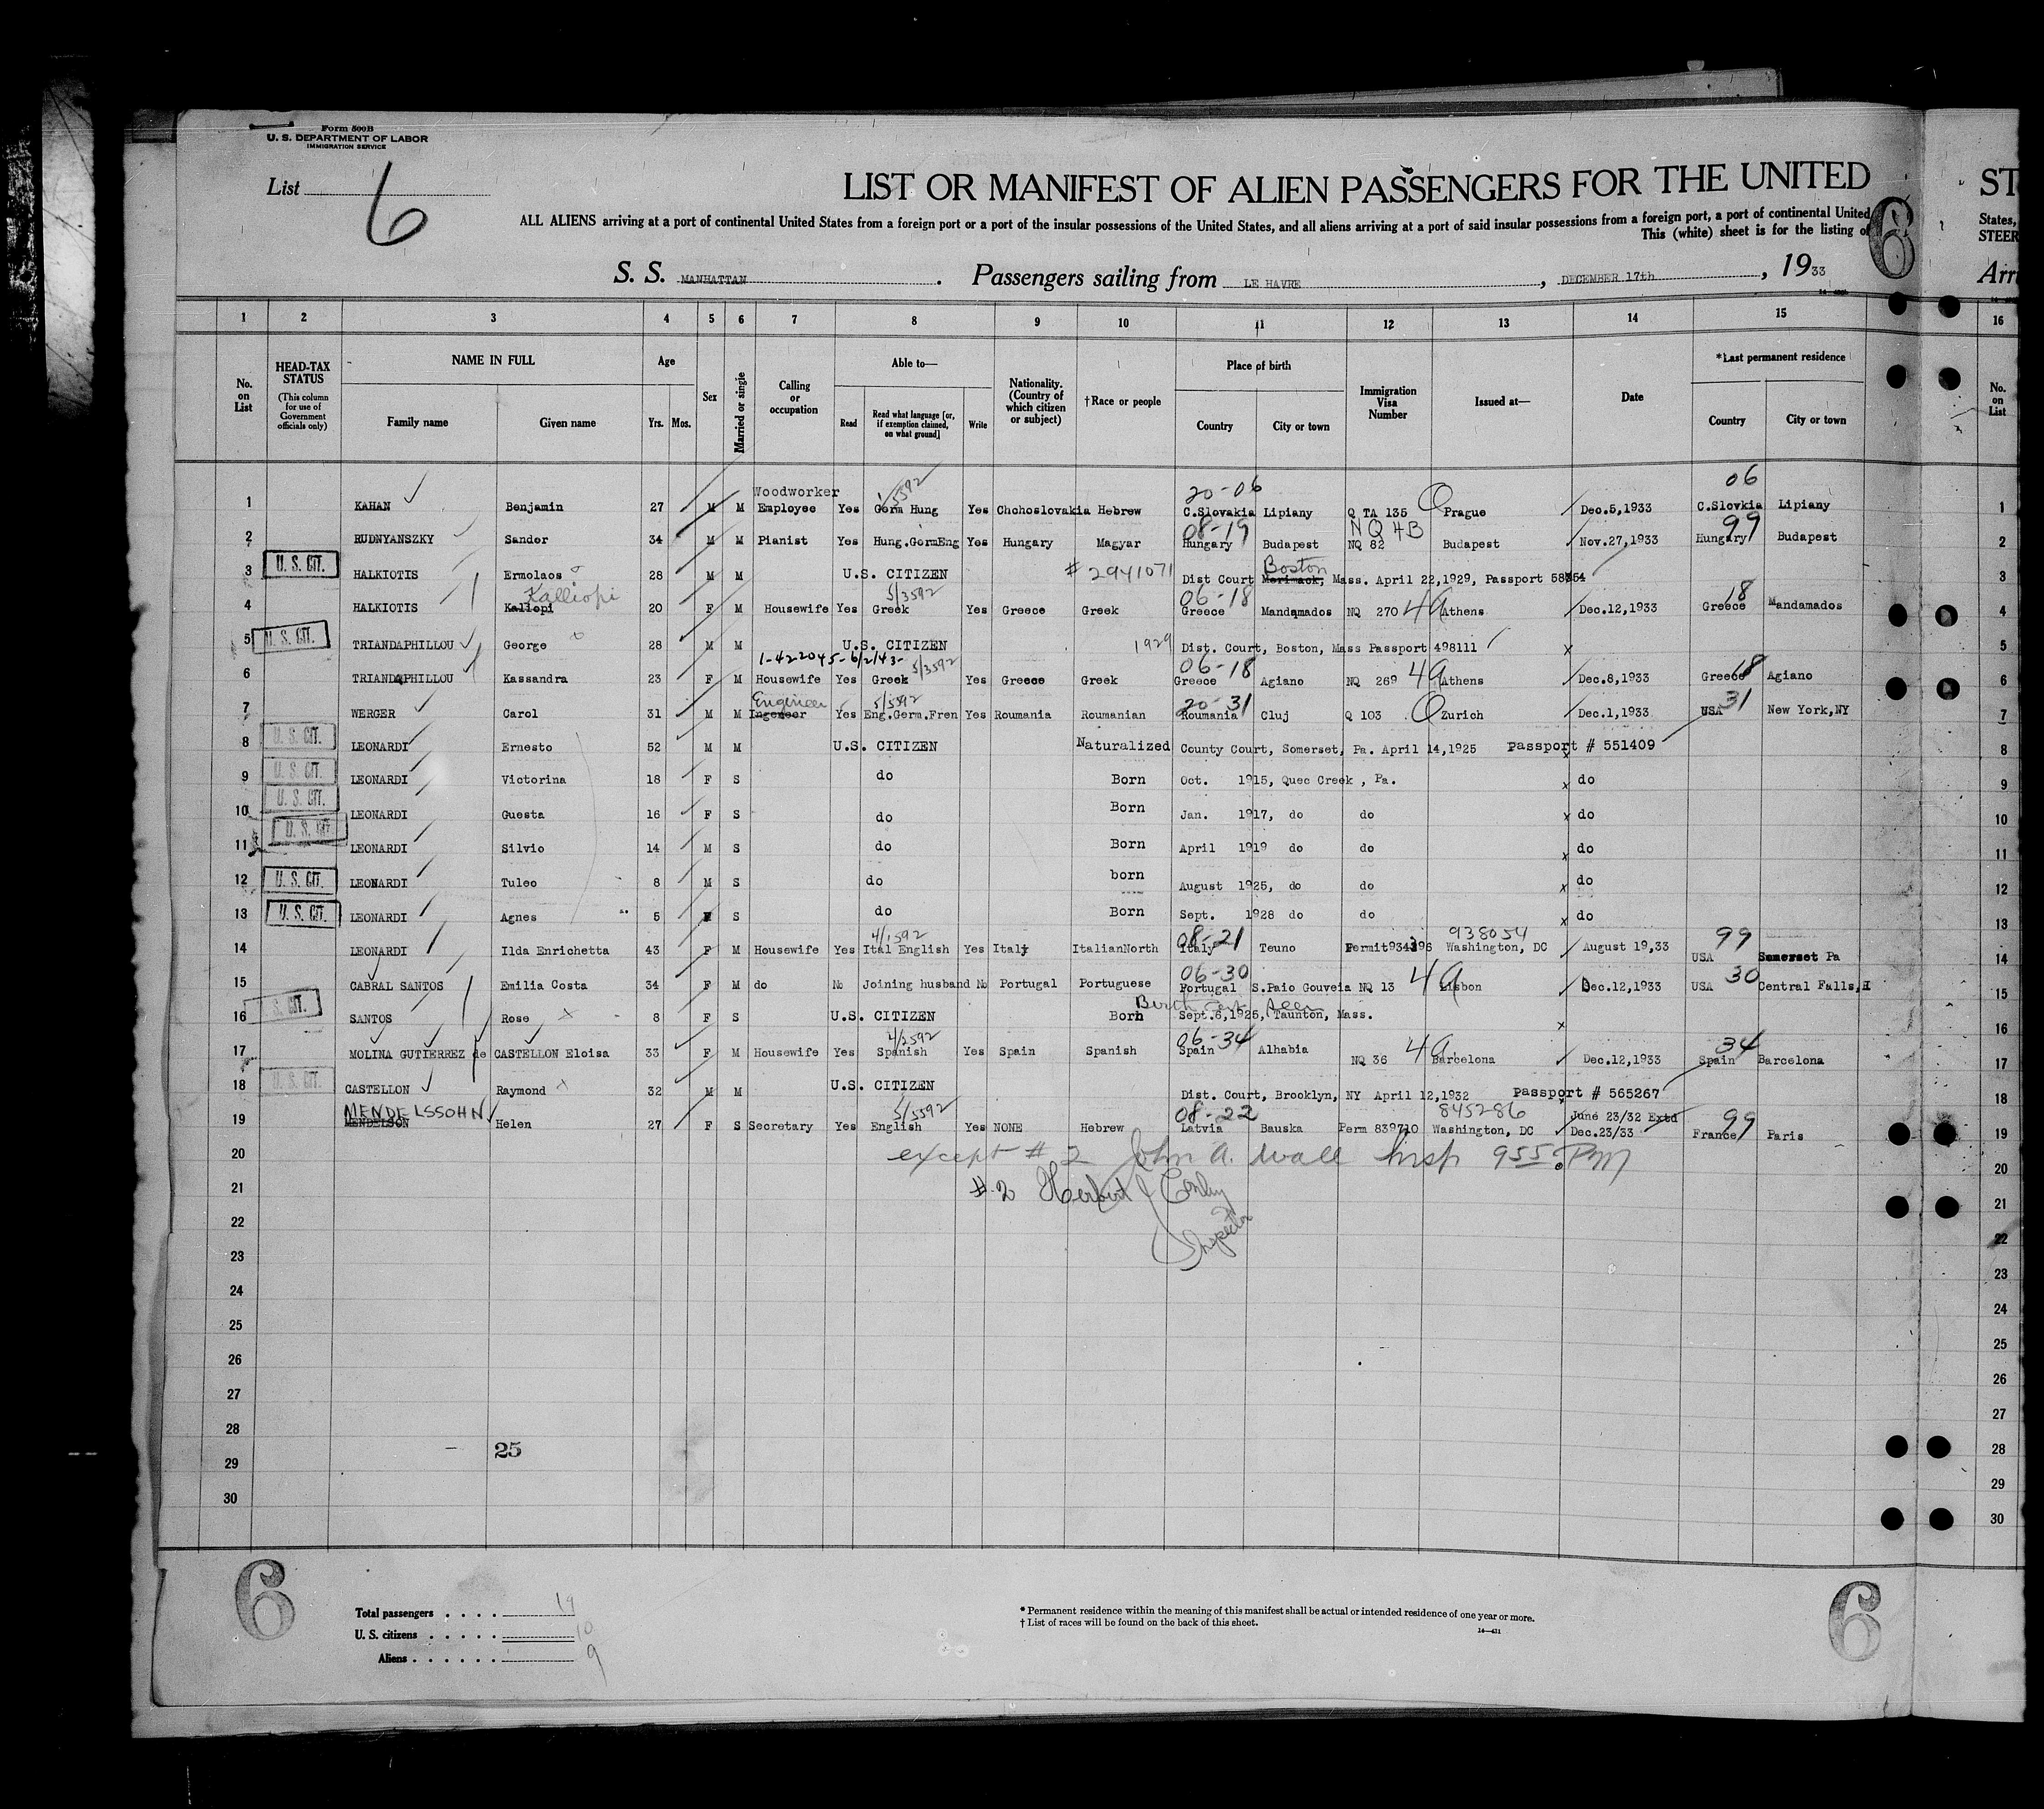 Form 500B
U. S. DEPARTMENT OF LABOR
IMMIGRATION SERVICE
List 6
LIST OR MANIFEST OF ALIEN PASSENGERS FOR THE UNITED
ST
ALL ALIENS arriving at a port of continental United States from a foreign port or a port of the insular possessions of the United States, and all aliens arriving at a port of said insular possessions from a foreign port, a port of continental United
States,
This (white) sheet is for the listing of
STEER
6
S. S. MANHATTAN. Passengers sailing from LE HAVRE, DECEMBER 17th, 1933
Arri
1 2 3 4 5 6 7 8 9 10 11 12 13 14 15 16
No. on List
HEAD-TAX STATUS (This column for use of Government officials only)
NAME IN FULL
Family name Given name
Age Yrs. Mos.
Sex
Married or single
Calling or occupation
Able to—
Read Read what language [or, if exemption claimed, on what ground] Write
Nationality. (Country of which citizen or subject)
†Race or people
Place of birth
Country City or town
Immigration Visa Number
Issued at—
Date
*Last permanent residence
Country City or town
No. on List
Woodworker 5592 20-06 06
1 KAHAN Benjamin 27 M M Employee Yes Germ Hung Yes Chchoslovakia Hebrew C.Slovakia Lipiany Q TA 135 Prague Dec.5,1933 C.Slovkia Lipiany 1
08-19 NQ 4B 99
2 RUDNYANSZKY Sandor 34 M M Pianist Yes Hung.GermEng Yes Hungary Magyar Hungary Budapest NQ 82 Budapest Nov.27,1933 Hungary Budapest 2
U. S. CIT. Boston
3 HALKIOTIS Ermolaos 28 M M U.S. CITIZEN # 2941071 Dist Court Merimack, Mass. April 22,1929, Passport 3
Kalliopi 5/3592 06-18 18
4 HALKIOTIS Kaliopi 20 F M Housewife Yes Greek Yes Greece Greek Greece Mandamados NQ 270 4a Athens Dec.12,1933 Greece Mandamados 4
U. S. CIT.
5 TRIANDAPHILLOU George 28 M M U.S. CITIZEN 1929 Dist. Court, Boston, Mass Passport 498111 x 5
1-422045-6/2/43- 5/3592 06-18 18
6 TRIANDAPHILLOU Kassandra 23 F M Housewife Yes Greek Yes Greece Greek Greece Agiano NQ 269 4a Athens Dec.8,1933 Greece Agiano 6
Engineer 5/5592 20-31 31
7 WERGER Carol 31 M M Ingeneer Yes Eng.Germ.Fren Yes Roumania Roumanian Roumania Cluj Q 103 Zurich Dec.1,1933 USA New York,NY 7
8 U. S. CIT. LEONARDI Ernesto 52 M M U.S. CITIZEN Naturalized County Court, Somerset, Pa. April 14,1925 Passport # 551409 8
9 U. S. CIT. LEONARDI Victorina 18 F S do Born Oct. 1915, Quec Creek , Pa. x do 9
10 U. S. CIT. LEONARDI Guesta 16 F S do Born Jan. 1917, do do x do 10
11 U. S. CIT. LEONARDI Silvio 14 M S do Born April 1919 do do x do 11
12 U. S. CIT. LEONARDI Tuleo 8 M S do born August 1925, do do x do 12
13 U. S. CIT. LEONARDI Agnes 5 S do Born Sept. 1928 do do x do 13
4/1592 08-21 938054 99
14 LEONARDI Ilda Enrichetta 43 F M Housewife Yes Ital English Yes Italy ItalianNorth Italy Teuno Washington, DC August 19,33 USA Somerset Pa 14
06-30 30
15 CABRAL SANTOS Emilia Costa 34 F M do No Joining husband No Portugal Portuguese Portugal S.Paio Gouveia NQ 13 4a Lisbon Dec.12,1933 USA Central Falls, 15
S. CIT. Birth
16 SANTOS Rose 8 F S U.S. CITIZEN Born Sept.6,1925, Taunton, Mass. x 16
4/2592 06-34 34
17 MOLINA GUTIERREZ de CASTELLON Eloisa 33 F M Housewife Yes Spanish Yes Spain Spanish Spain Alhabia NQ 36 4a Barcelona Dec.12,1933 Spain Barcelona 17
18 U. S. CIT. CASTELLON Raymond 32 M M U.S. CITIZEN Dist. Court, Brooklyn, NY April 12,1932 Passport # 565267 18
MENDELSSOHN 5/5592 08-22 845286 June 23/32 Extd 99
19 MENDELSON Helen 27 F S Secretary Yes English Yes NONE Hebrew Latvia Bauska Perm 839710 Washington, DC Dec.23/33 France Paris 19
20 except # 2 John A. Wall Insp 955 PM 20
21 #2 Herbert J Conley 21
22 Inspector 22
23 23
24 24
25 25
26 26
27 27
28 28
25
29 29
30 30
6
Total passengers . . . . 19
U. S. citizens . . . . . 10
Aliens . . . . . . 9
* Permanent residence within the meaning of this manifest shall be actual or intended residence of one year or more.
† List of races will be found on the back of this sheet.
14—431
6